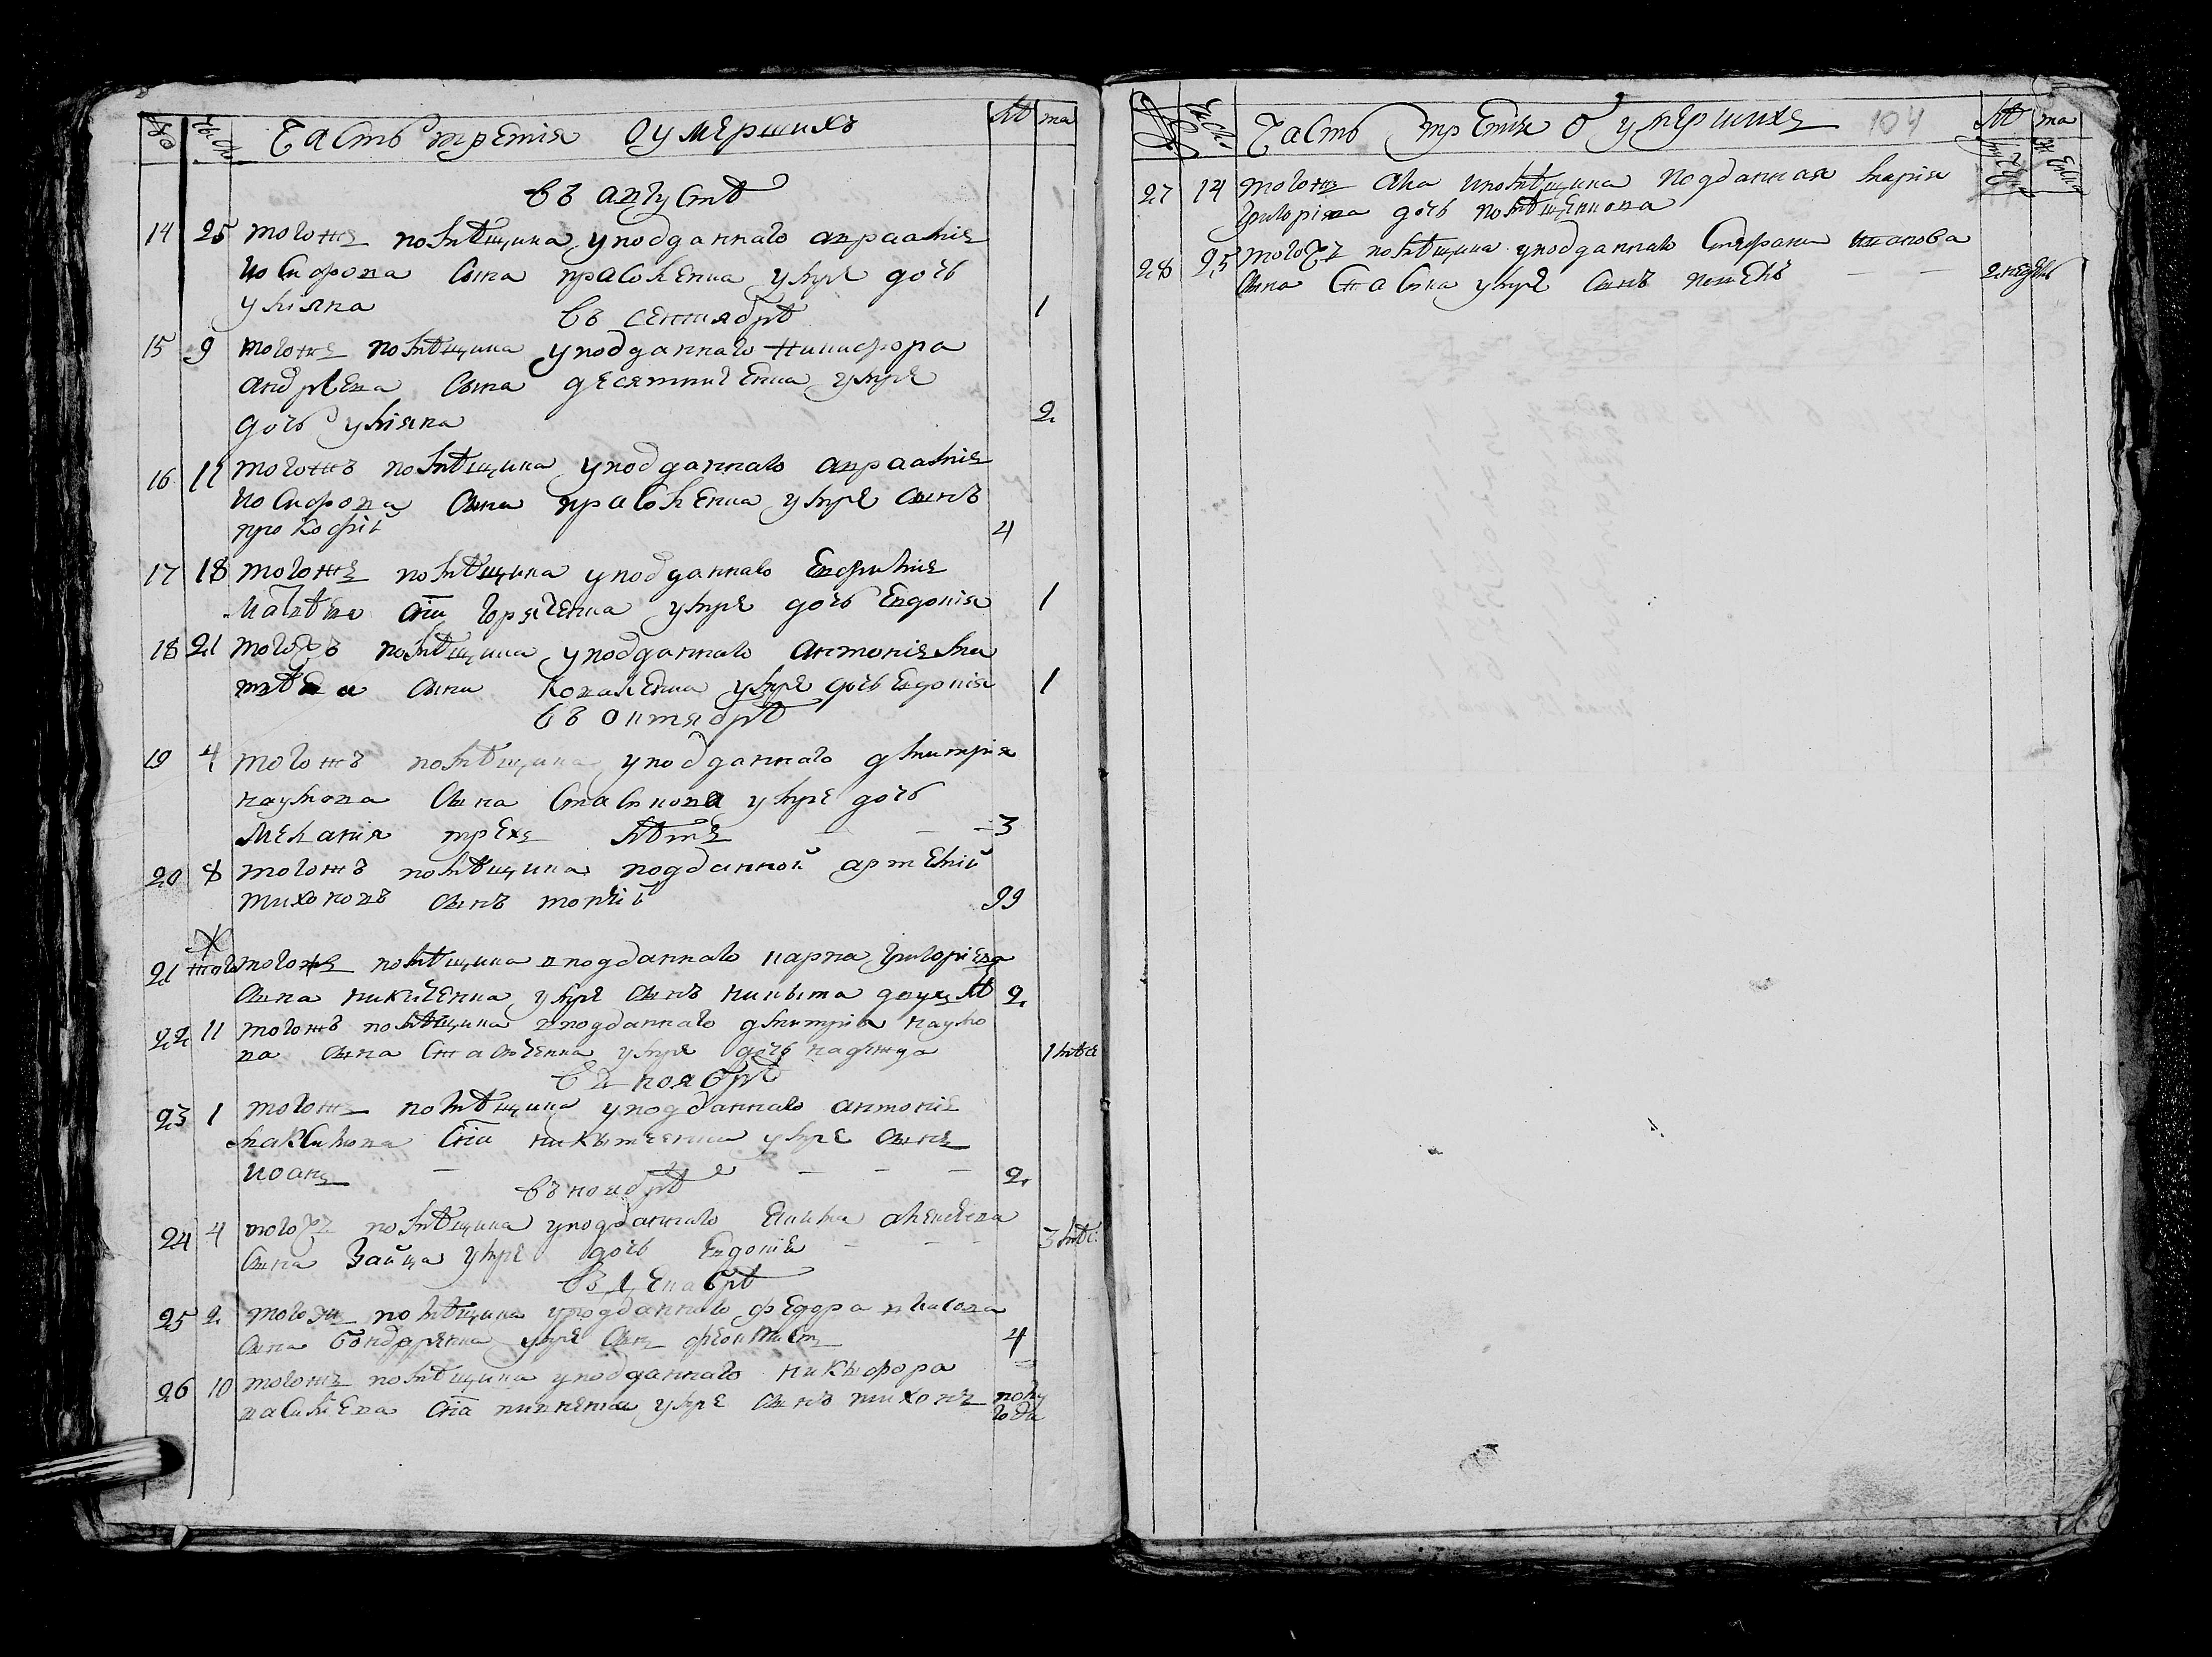 Часть третія О умершихъ лѣ та
Въ августѣ
14 25 того жъ помѣщика у подданнаго авраамія
иосифова сына прасоленка умре дочь
уліяна 1
Въ сентябрѣ
15 9 того жъ помѣщика у подданнаго никифора
андрѣева сына десятниченка умре
дочь уліяна 2
16 11 того жъ помѣщика у подданнаго авраамія
иосифова сына прасоленка умре сынъ
прокофій 4
17 18 того жъ помѣщика у подданнаго евфимія
матвѣева сна горяченка умре дочь евдокія 1
18 21 того жъ помѣщика у подданнаго антонія ма
твѣева сына коваленка умре дочь евдокія 1
Въ октябрѣ
19 4 того жъ помѣщика у подданнаго дмитрія
наумова сына умре дочь
меланія трехъ лѣтъ 3
20 8 того жъ помѣщика подданной артемій
тихоновъ сынъ 99
21 того жъ помѣщика в подданнаго карпа григоріева
сына никиченка умре сынъ никыта двухъ лѣ 2
22 11 того жъ помѣщика в подданнаго дмитрія наумо
ва сына умре дочь надежда 1 мѣся
Въ ноябрѣ
23 1 того жъ помѣщика у подданнаго антонія
максимова сна никытченка умре сынъ
иоанъ 2
Въ ноябрѣ
24 4 того жъ помѣщика у подданнаго екима алексѣева
сына Зайца умре дочь евдокія 3 мѣс:
Въ декабрѣ
25 2 того жъ помѣщика у подданнаго федора власова
сына бондаренка умре сынъ феоктистъ 4
26 10 того жъ помѣщика у подданнаго никыфора
василіева сна умре сынъ тихонъ полу
года
Часть третія О умершихъ 104 лѣ та
27 14 того жъ помѣщика подданная марія
григоріева дочь
28 25 того жъ помѣщика у подданнаго стефана иванова
сына умре сынъ 2 недѣль